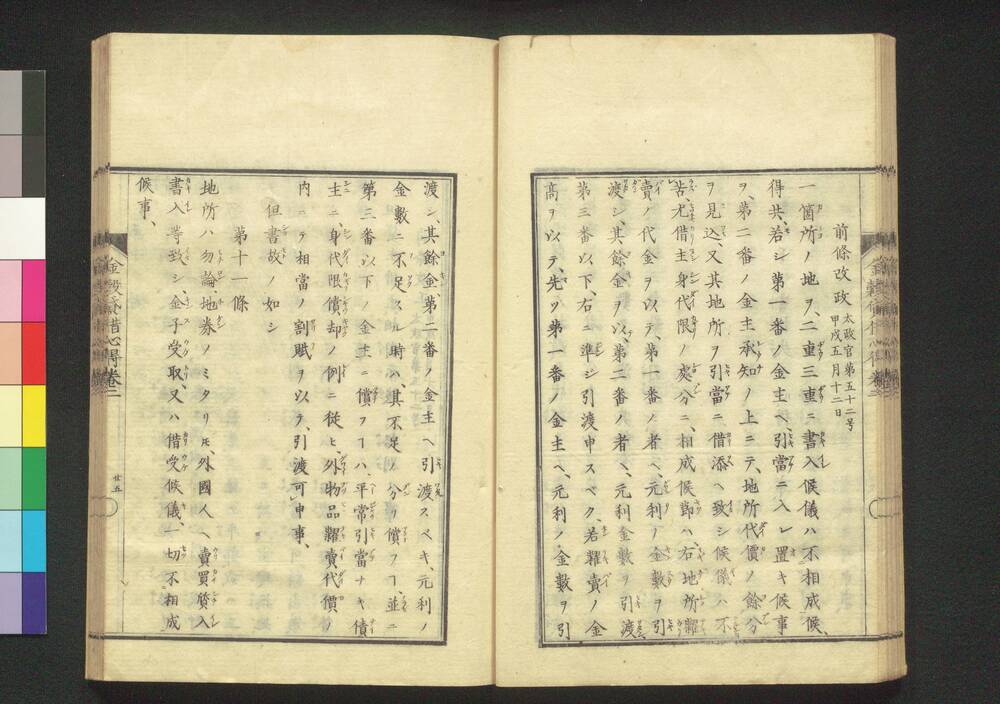 前條改政太政官第五十二号
甲戌五月十二日
一箇所ノ地ヲ、二重三重ニ書入候儀ハ不相成候、
得共、若シ第一番ノ金主ヘ、引當ニ入レ置キ候事
ヲ、第二番ノ金主承知ノ上ニテ、地所代價ノ餘分
ヲ見込、又其地所ヲ引當ニ借添ヘ致シ候儀ハ不
苦、尤借主身代限ノ處分ニ、相成候節ハ、右地所糶
賣ノ代金ヲ以テ、第一番ノ者ヘ、元利ノ金數ヲ引
渡シ、其餘金ヲ以、第二番ノ者ヘ、元利金數ヲ引渡
第三番以下、右ニ準シ引渡申スベク、若糶賣ノ金
高ヲ以テ、先ツ第一番ノ金主ヘ、元利ノ金數ヲ引
渡シ、其餘金、第二番ノ金主ヘ引渡スベキ、元利ノ
金數ニ不足スル時ハ、其不足ノ分ヲ償フヿ、並ニ
第三番以下ノ金主ニ償フヿハ、平常引當ナキ債
主ニ、身代限償却ノ例ニ從ヒ、外物品糶賣代價ノ
内ニテ相當ノ割賦ヲ以テ、引渡可申事、
但書故ノ如シ
第十一條
地所ハ勿論、地券ノミタリ𪜈、外國人ヘ賣買質入
書入等致シ、金子受取、又ハ借受候儀、一切不相成
候事、
金穀貸借心得卷二
廿五